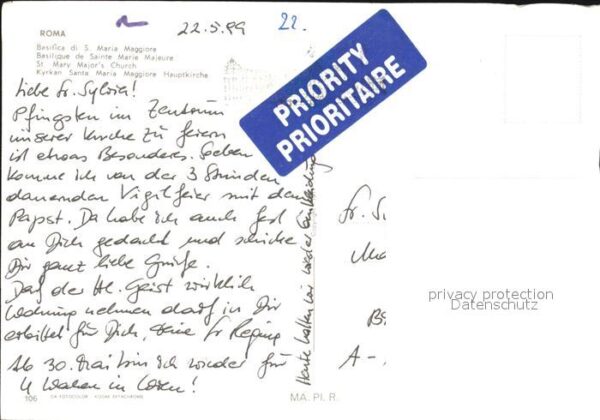 ROMA
22.5.99
22.
Basilica di S. Maria Maggiore
Basilique de Sainte Marie Majeure
St Mary Major's Church
Kyrkan Santa Maria Maggiore Hauptkirche
PRIORITY
PRIORITAIRE
Liebe Sr. Sylvia!
Pfingsten im Zentrum
unserer Kirche zu feiern
ist etwas Besonderes. Soeben
komme ich von der 3 Stunden
dauernden Vigilfeier mit dem
Papst. Da habe ich auch fest
an Dich gedacht und schicke
Dir ganz liebe Grüße.
Daß der Hl. Geist wirklich
Wohnung nehmen darf in Dir
erbittet für Dich, Deine Sr Regina
Ab 30. Mai bin ich wieder für
4 Wochen in
Heute hatten wir wieder Einkleidung
Sr. Sy
A-
privacy protection
Datenschutz
106
KODAK EKTACHROME
MA. PI. R.